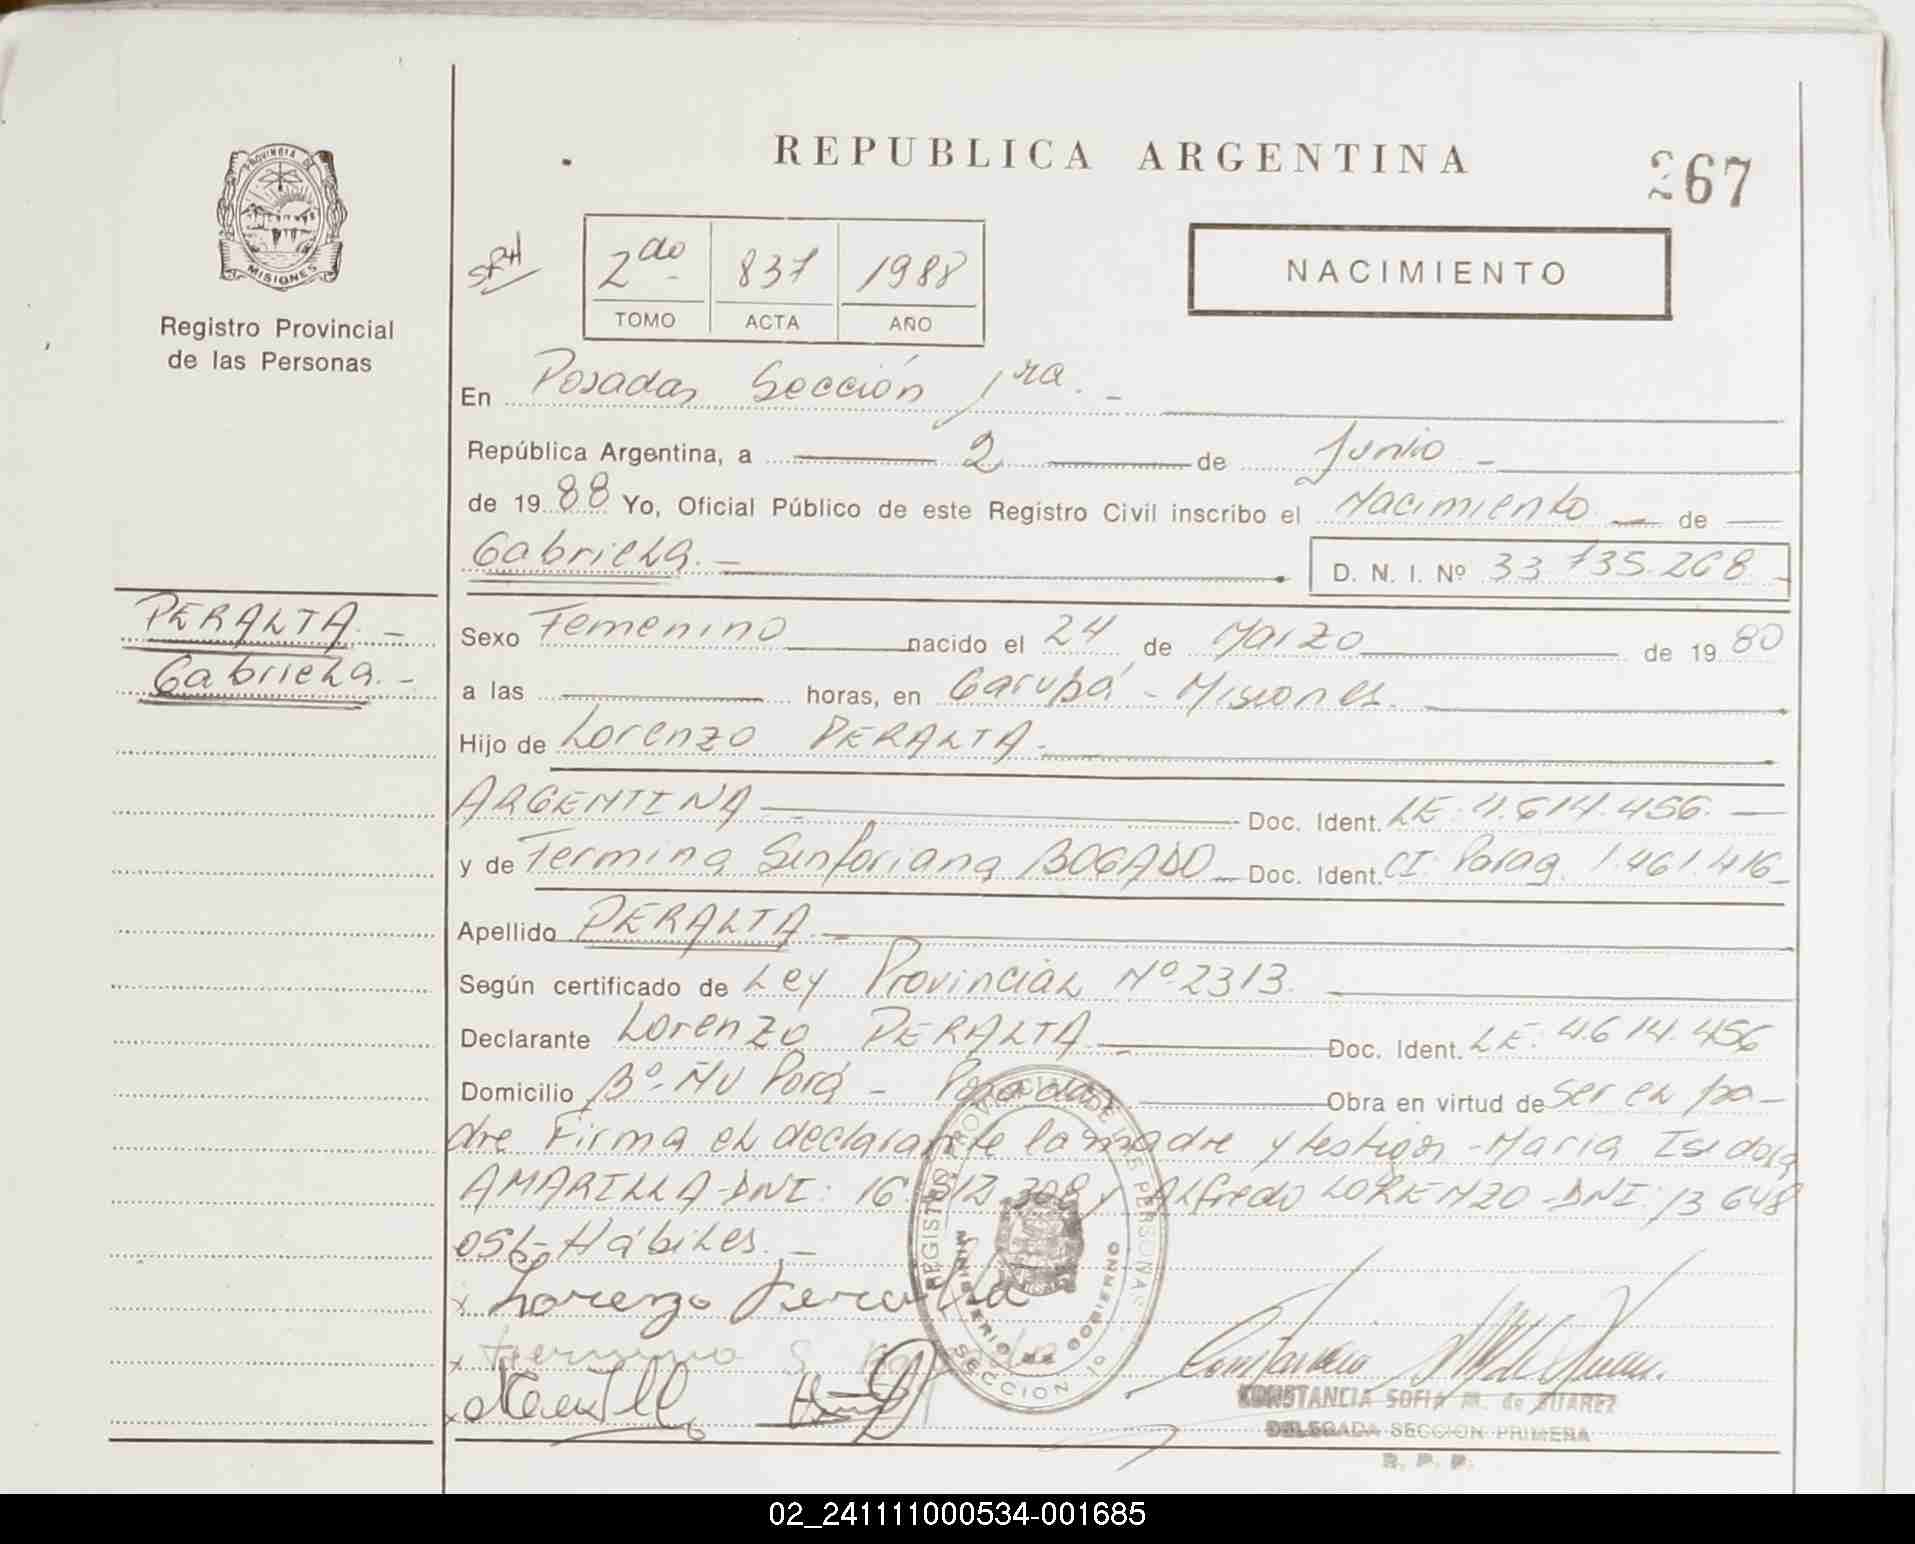 REPUBLICA ARGENTINA
267
PROVINCIA DE
MISIONES
Registro Provincial
de las Personas
2do 837 1988
TOMO ACTA AÑO
NACIMIENTO
En Posadas Sección 1ra. -
República Argentina, a 2 de Junio -
de 1988 Yo, Oficial Público de este Registro Civil inscribo el Nacimiento de
Gabriela. - D. N. I. Nº 33 735.268 -
PERALTA. -
Gabriela. -
Sexo Femenino nacido el 24 de Marzo de 1980
a las horas, en Garupá - Misiones.
Hijo de Lorenzo PERALTA -
ARGENTINA Doc. Ident. LE: 4.614.456. -
y de Fermina Sinforiana BOGADO - Doc. Ident. CI: Parag. 1.461.416 -
Apellido PERALTA. -
Según certificado de Ley Provincial Nº 2313.
Declarante Lorenzo PERALTA Doc. Ident. LE: 4.614.456
Domicilio Bº. Ñu Porá - Posadas Obra en virtud de ser el pa-
dre Firma el declarante la madre y testigos - Maria Isidora
AMARILLA - DNI: 16. 308 y Alfredo LORENZO - DNI: 13 648
Hábiles. -
x Lorenzo Peralta
x Fermina S
x
REGISTRO PROVINCIAL DE LAS PERSONAS
MINISTERIO DE GOBIERNO
SECCION 1º
CONSTANCIA SOFIA M. de SUAREZ
DELEGADA SECCION PRIMERA
R. P. P.
02_241111000534-001685